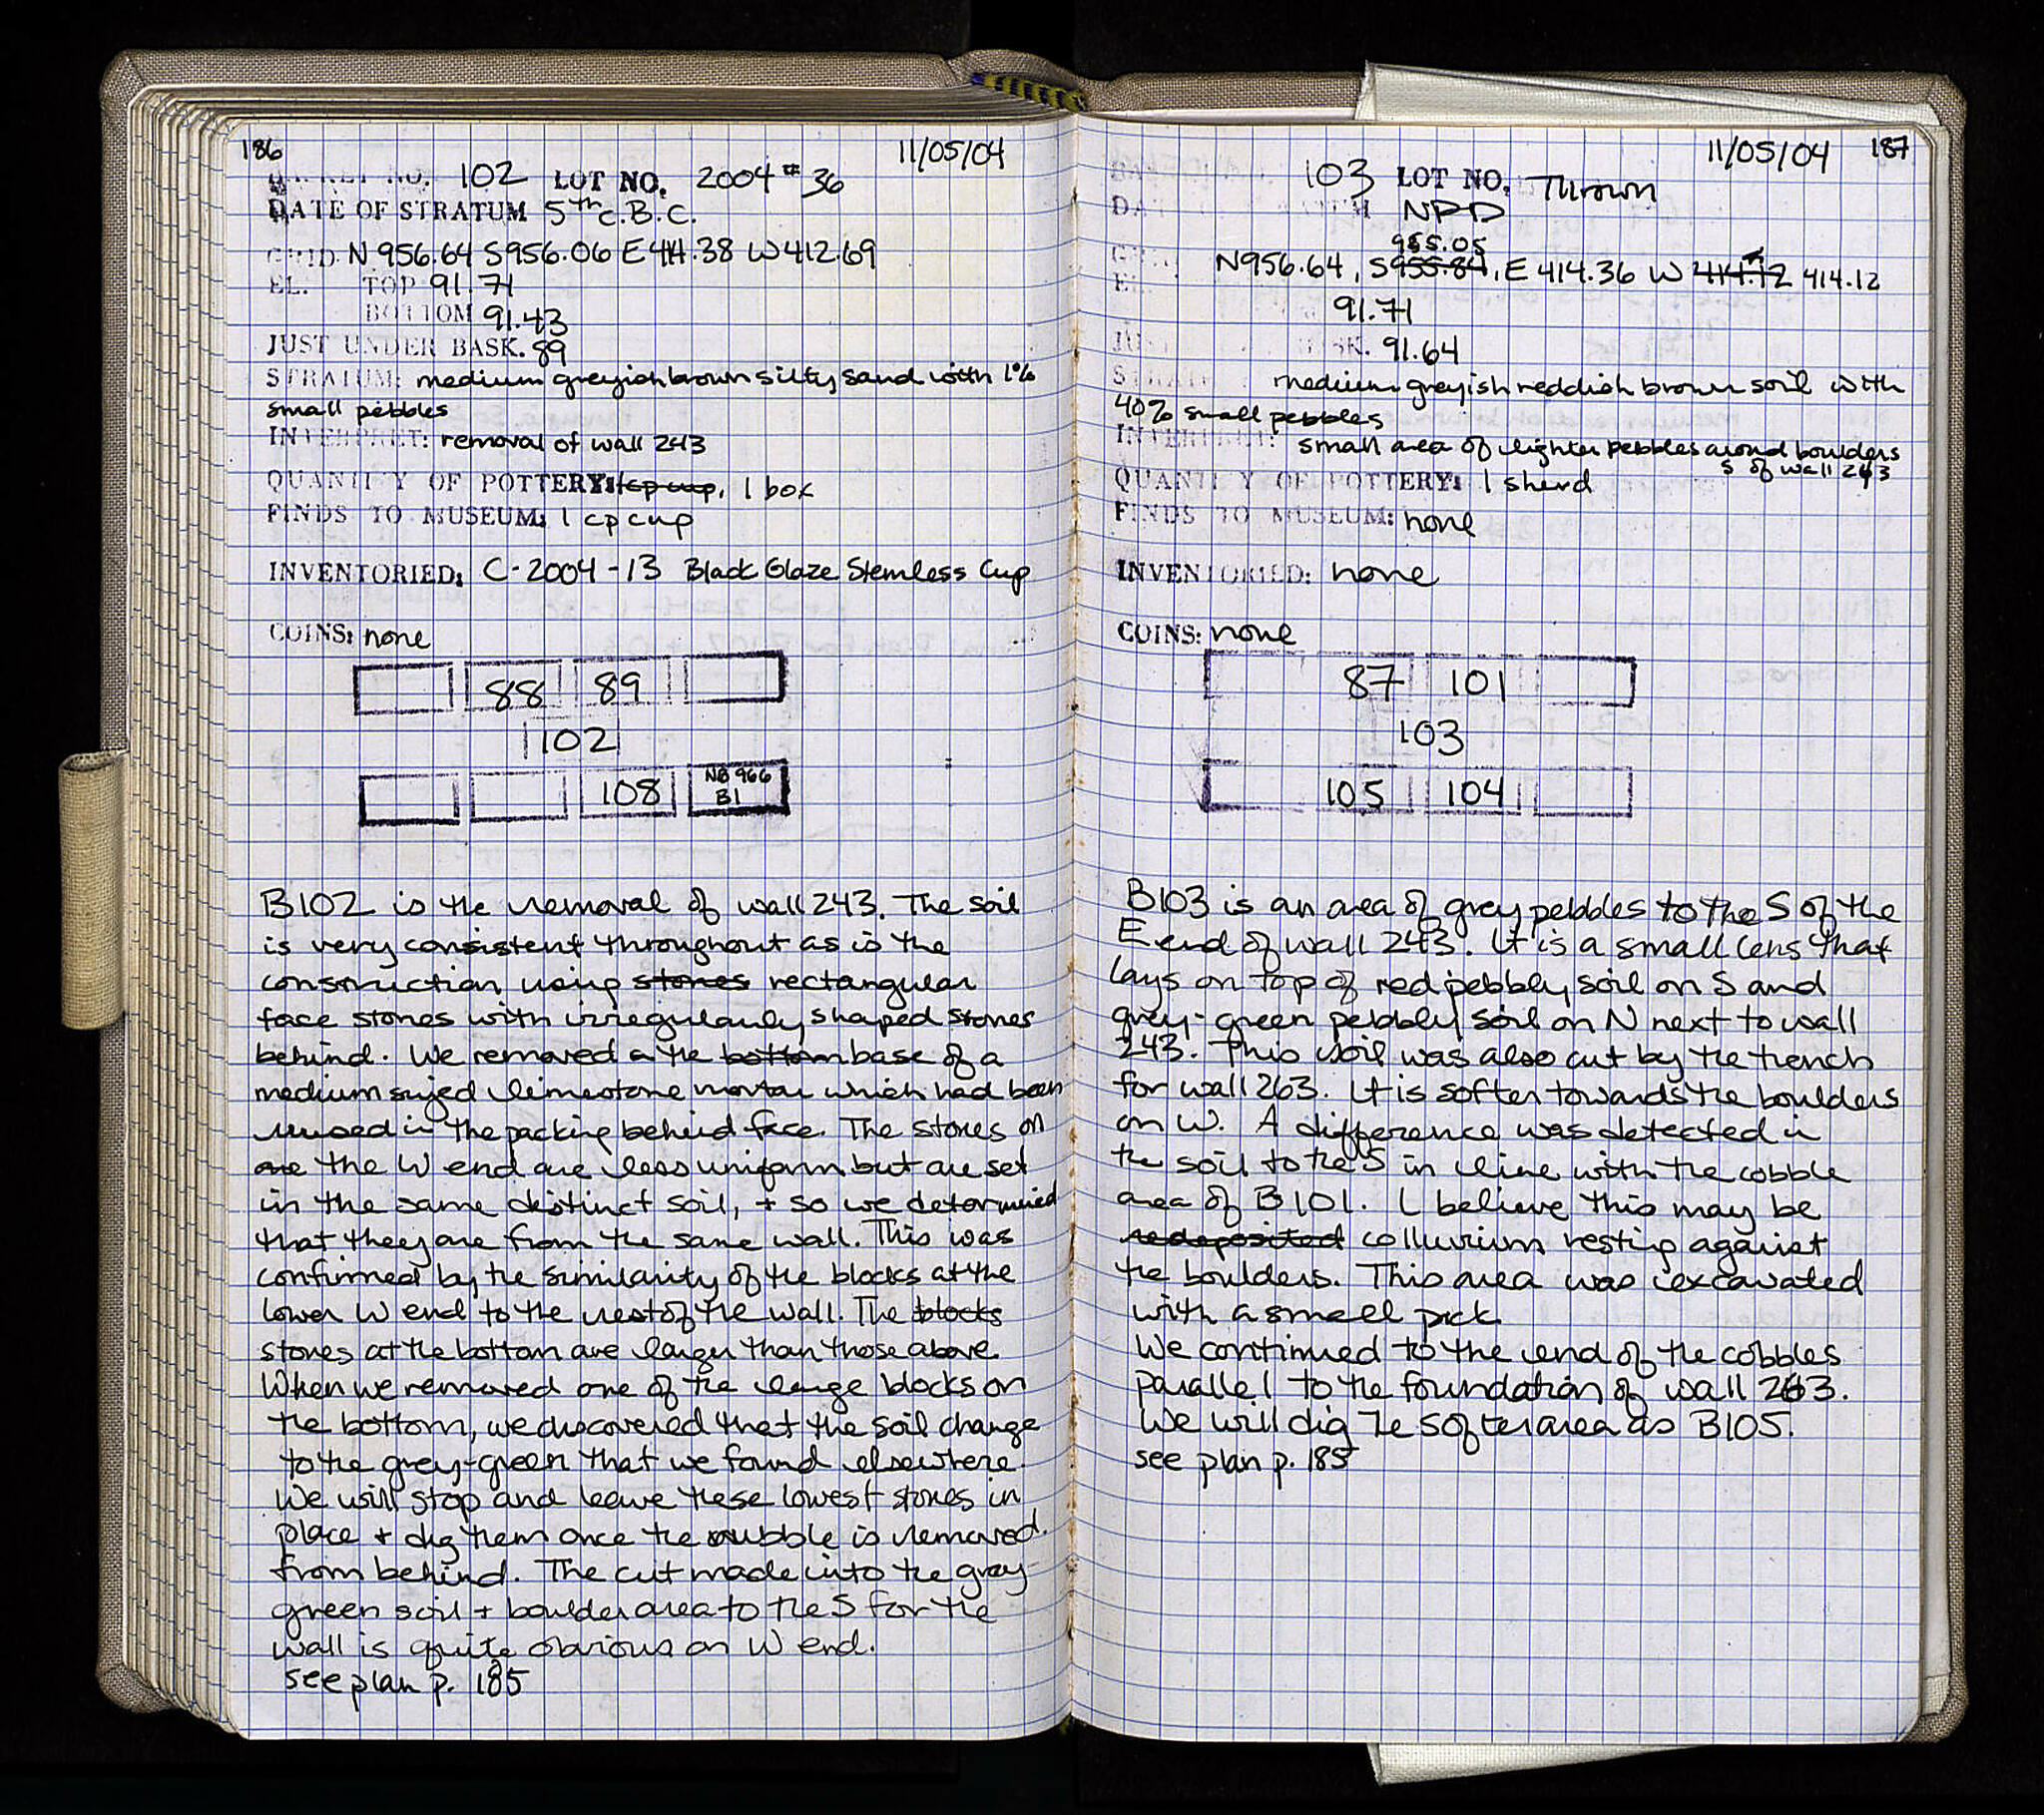 186
11/05/04
BASKET NO. 102 LOT NO. 2004 #36
DATE OF STRATUM 5th c. B.C.
GRID N 956.64 S956.06 E414.38 W412.69
EL. TOP 91.71
BOTTOM 91.43
JUST UNDER BASK. 89
STRATUM: medium greyish brown silty sand with 1%
small pebbles
INTERPRET: removal of wall 243
QUANTITY OF POTTERY: 1 cp cup, 1 box
FINDS TO MUSEUM: 1 cp cup
INVENTORIED: C-2004-13 Black Glaze Stemless Cup
COINS: none
88 89
102
108 NB 966
B1
B102 is the removal of wall 243. The soil
is very consistent throughout as is the
construction using stones rectangular
face stones with irregularly shaped stones
behind. We removed a the bottom base of a
medium sized limestone mortar which had been
reused in the packing behind face. The stones on
are the W end are less uniform but are set
in the same distinct soil, + so we determined
that they are from the same wall. This was
confirmed by the similarity of the blocks at the
lower W end to the rest of the wall. The blocks
stones at the bottom are larger than those above.
When we removed one of the large blocks on
the bottom, we discovered that the soil change
to the grey-green that we found elsewhere.
We will stop and leave these lowest stones in
place + dig them once the rubble is removed.
from behind. The cut made into the gray-
green soil + boulder area to the S for the
wall is quite obvious on W end.
see plan p. 185
11/05/04 187
103 LOT NO. Thrown
NPD
955.05
N956.64, S955.84, E 414.36 W 414.12 414.12
91.71
BASK. 91.64
STRATUM medium greyish reddish brown soil with
40% small pebbles
INTERPRET: small area of lighter pebbles around boulders
S of wall 243
QUANTITY OF POTTERY: 1 sherd
FINDS TO MUSEUM: none
INVENTORIED: none
COINS: none
87 101
103
105 104
B103 is an area of grey pebbles to the S of the
E end of wall 243. It is a small lens that
lays on top of red pebbly soil on S and
grey-green pebbly soil on N next to wall
243. This soil was also cut by the trench
for wall 263. It is softer towards the boulders
on W. A difference was detected in
the soil to the S in line with the cobble
area of B101. I believe this may be
redeposited colluvium resting against
the boulders. This area was excavated
with a small pick.
We continued to the end of the cobbles
parallel to the foundation of wall 263.
We will dig the softer area as B105.
see plan p. 185